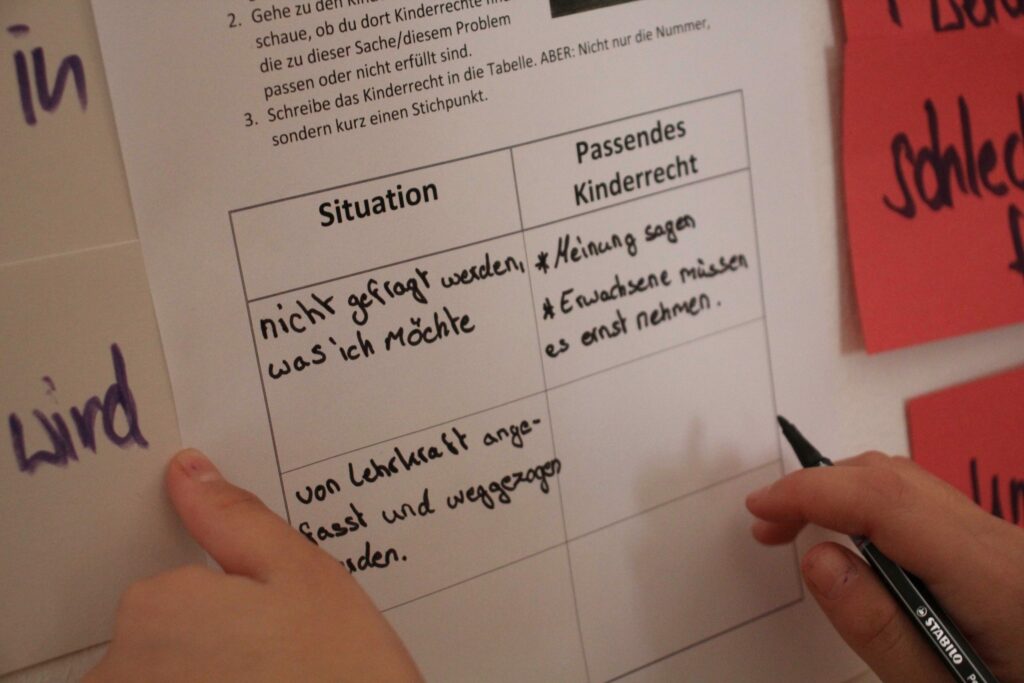 in
wird
2. Gehe zu den
schaue, ob du dort Kinderrechte
die zu dieser Sache/diesem Problem
passen oder nicht erfüllt sind.
3. Schreibe das Kinderrecht in die Tabelle. ABER: Nicht nur die Nummer,
sondern kurz einen Stichpunkt.
Situation
Passendes
Kinderrecht
nicht gefragt werden,
was ich möchte
* Meinung sagen
* Erwachsene müssen
es ernst nehmen.
von Lehrkraft ange-
fasst und weggezogen
STABILO